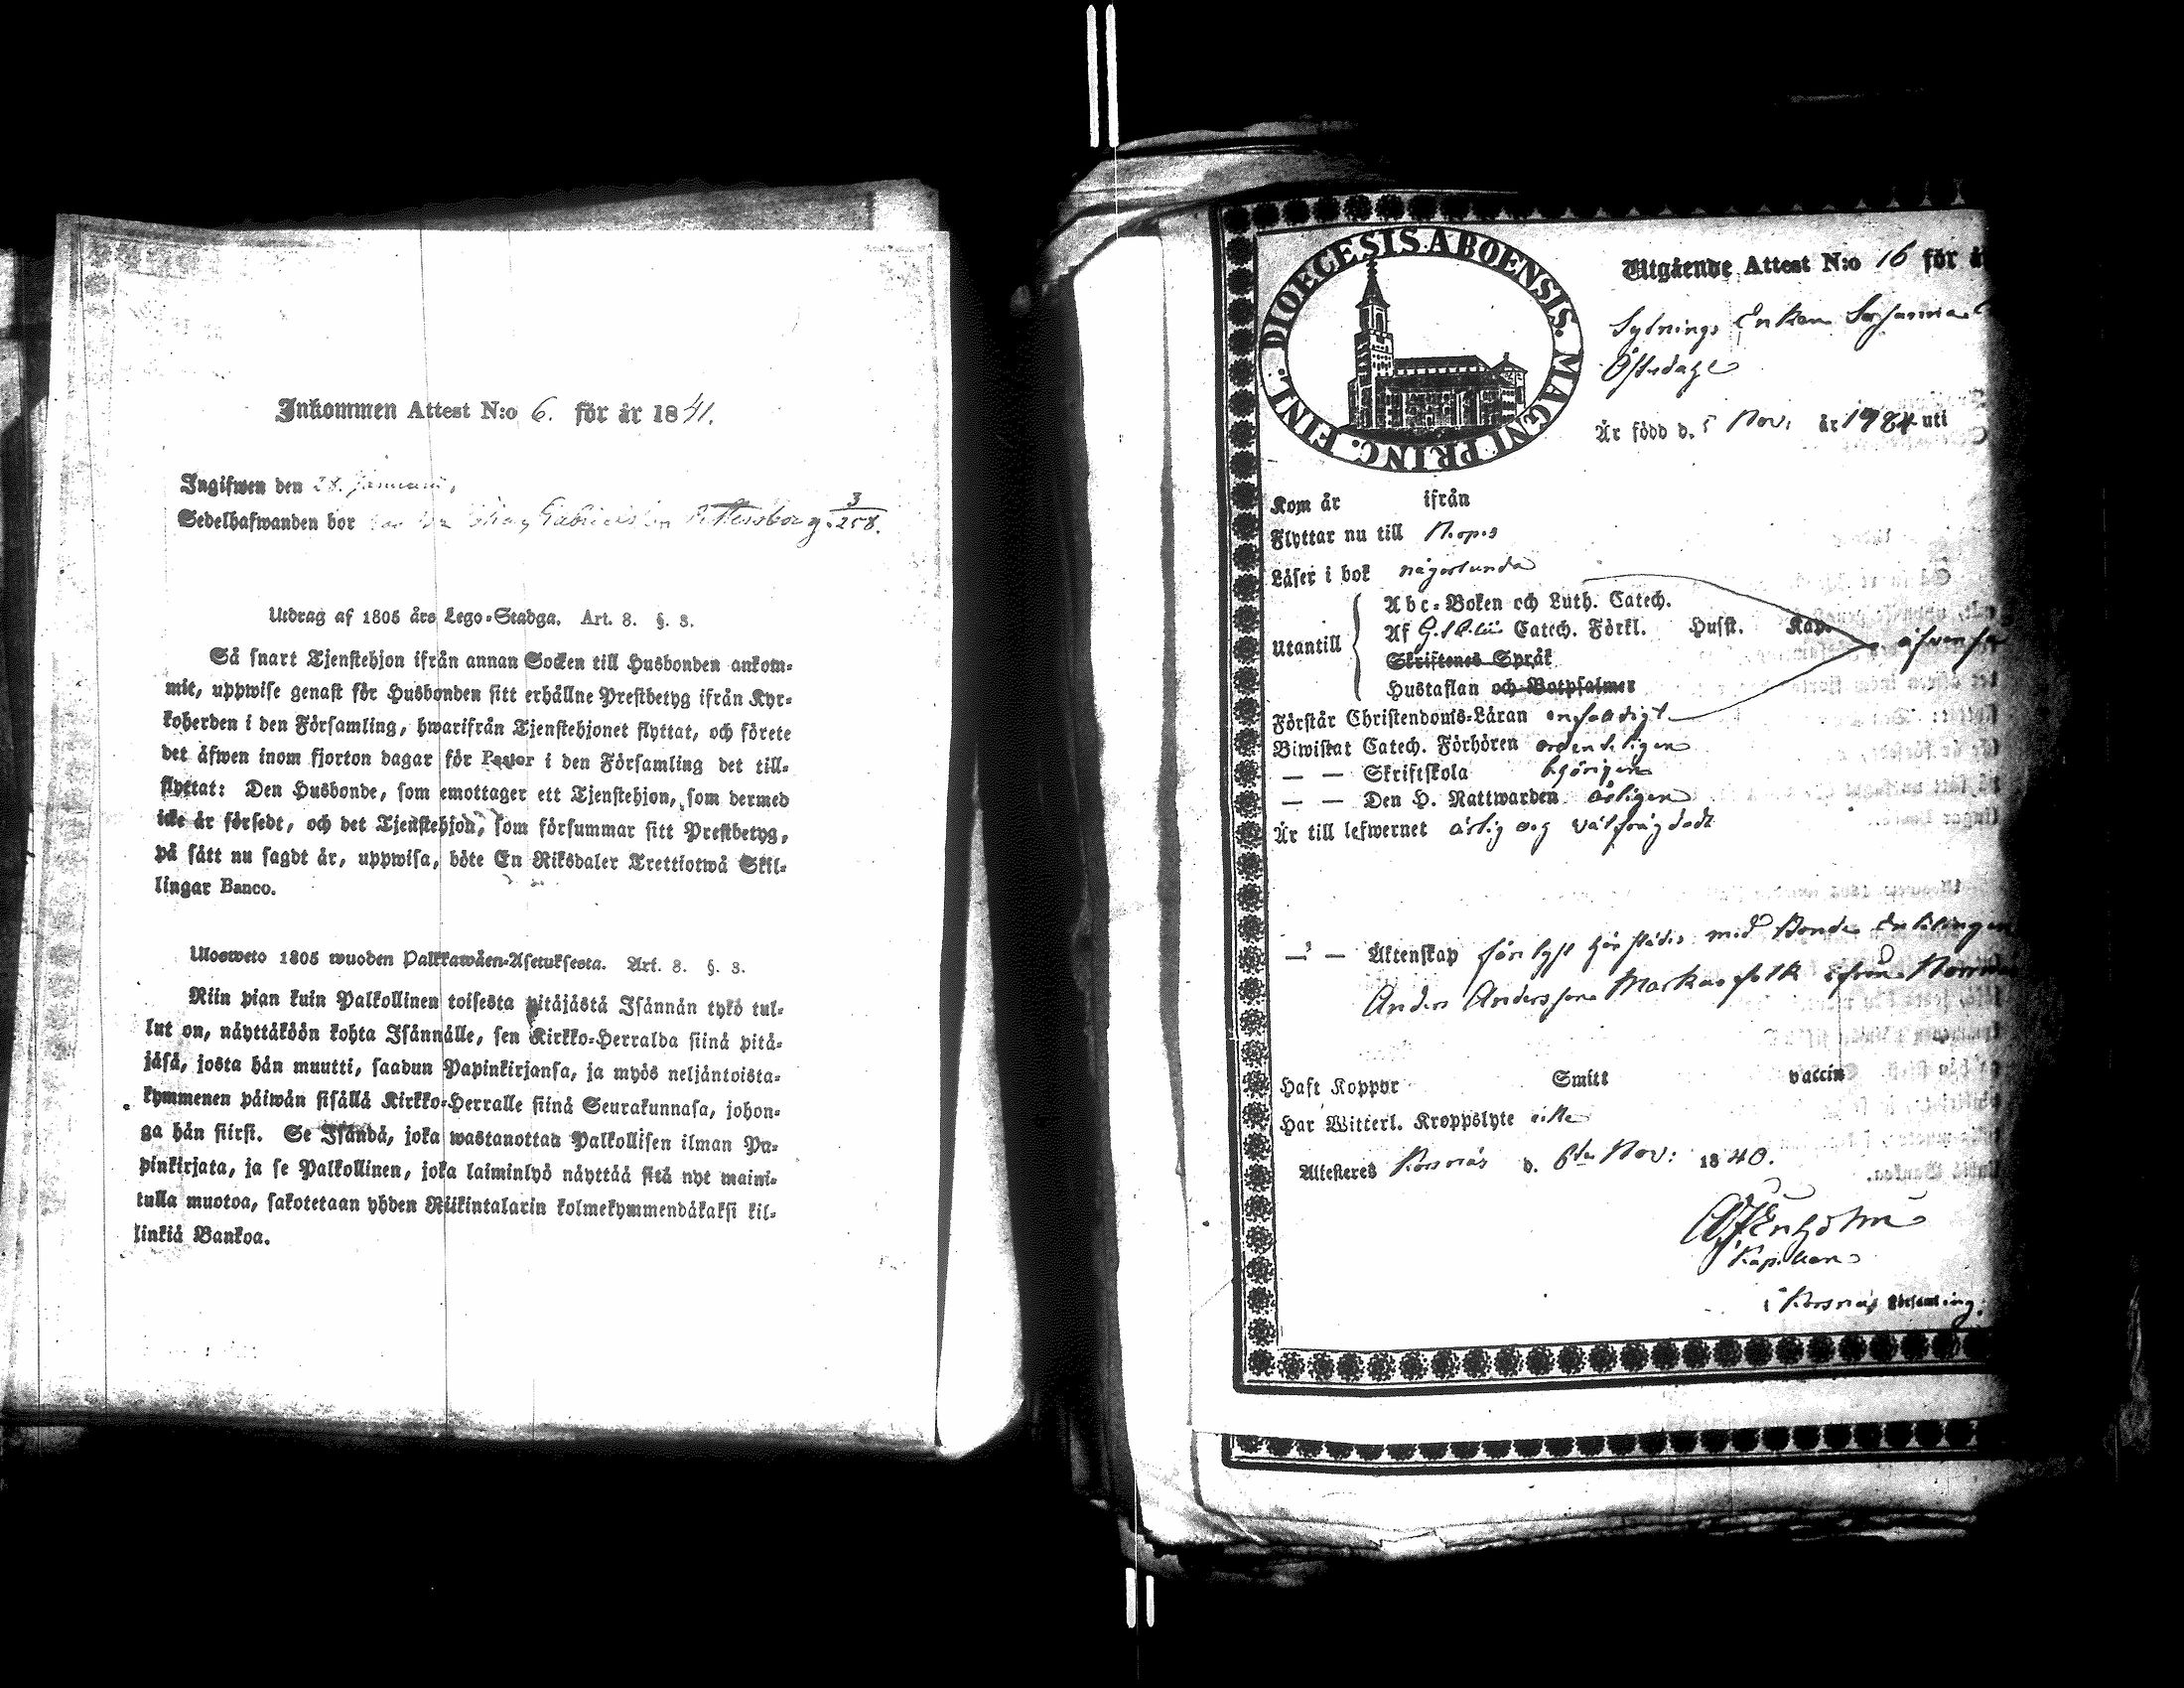 Inkommen Attest N:o 6. för år 1841.
Ingifwen den 28. Januarii,
Sedelhafwanden bor Gabrielsson Pettersborg. 3/258.
Utdrag af 1805 års Lego-Stadga. Art. 8. §. 3.
Så snart Tjenstehjon ifrån annan Socken till Husbonden ankom-
mit, uppwise genast för Husbonden sitt erhållne Prestbetyg ifrån Kyr-
koherden i den Församling, hwarifrån Tjenstehjonet flyttat, och förete
det äfwen inom fjorton dagar för Pastor i den Församling det till-
flyttat: Den Husbonde, som emottager ett Tjenstehjon, som dermed
icke är försedt, och det Tjenstehjon, som försummar sitt Prestbetyg,
på sätt nu sagdt är, uppwisa, böte En Riksdaler Trettiotwå Skil-
lingar Banco.
Ulosweto 1805 wuoden Palkkawäen-Asetuksesta. Art. 8. §. 3.
Niin pian kuin Palkollinen toisesta pitäjästä Isännän tykö tul-
lut on, näyttäköön kohta Isännälle, sen Kirkko-Herralda siinä pitä-
jäsä, josta hän muutti, saadun Papinkirjansa, ja myös neljäntoista-
kymmenen päiwän sisällä Kirkko-Herralle siinä Seurakunnasa, johon-
ga hän siirsi. Se Isändä, joka wastanottaa Palkollisen ilman Pa-
pinkirjata, ja se Palkollinen, joka laiminlyö näyttää sitä nyt maini-
tulla muotoa, sakotetaan yhden Riikintalarin kolmekymmendäkaksi kil-
linkiä Bankoa.
DIOECESIS ABOENSIS. MAGNI PRINC. FINL.
Utgående Attest N:o 16 för år
Sytnings Enkan Susanna
Är född d. 5 Nov. år 1784 uti
Kom år ifrån
Flyttar nu till
Läser i bok någorlunda
Utantill
Abc-Boken och Luth. Catech.
Af G. Catech. Förkl. Husst. Kap.
Skriftenes Språk
Hustaflan och Botpsalmer
äfven så
Förstår Christendoms-Läran enfaldigt
Biwistat Catech. Förhören ordenteligen
— — Skriftskola behörigen
— — Den H. Nattwarden årligen
Är till lefwernet ärlig och välfrägdadt
— — Äktenskap förlyst härstädes med Bonde Enklingen
Anders Andersson Markusfolk ifrån
Haft Koppor Smitt vaccin
Har Witterl. Kroppslyte icke
Attesteras Korsnäs d. 6te Nov: 1840.
Kapellan
i Korsnäs Församling.